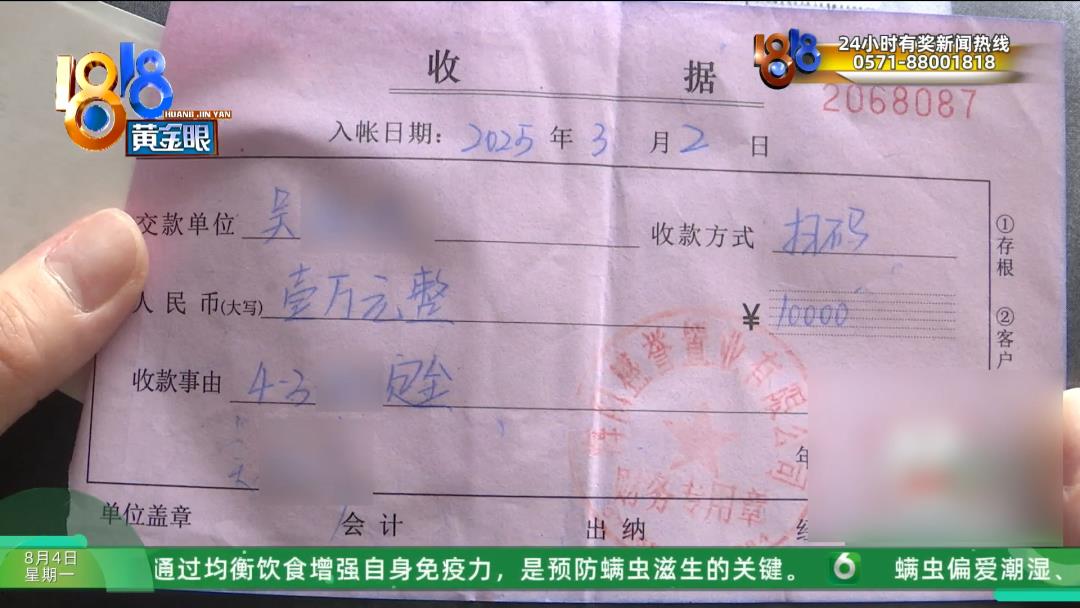 1818
HUANG JIN YAN
黄金眼
24小时有奖新闻热线
0571-88001818
收 据
2068087
入帐日期: 2025 年 3 月 2 日
交款单位 吴
收款方式 扫码
人民币(大写) 壹万元整
¥ 10000
收款事由 4-3 定金
①存根
②客户
誉置业有限公司
财务专用章
年
单位盖章
会计
出纳
8月4日
星期一
通过均衡饮食增强自身免疫力，是预防螨虫滋生的关键。
6
螨虫偏爱潮湿、